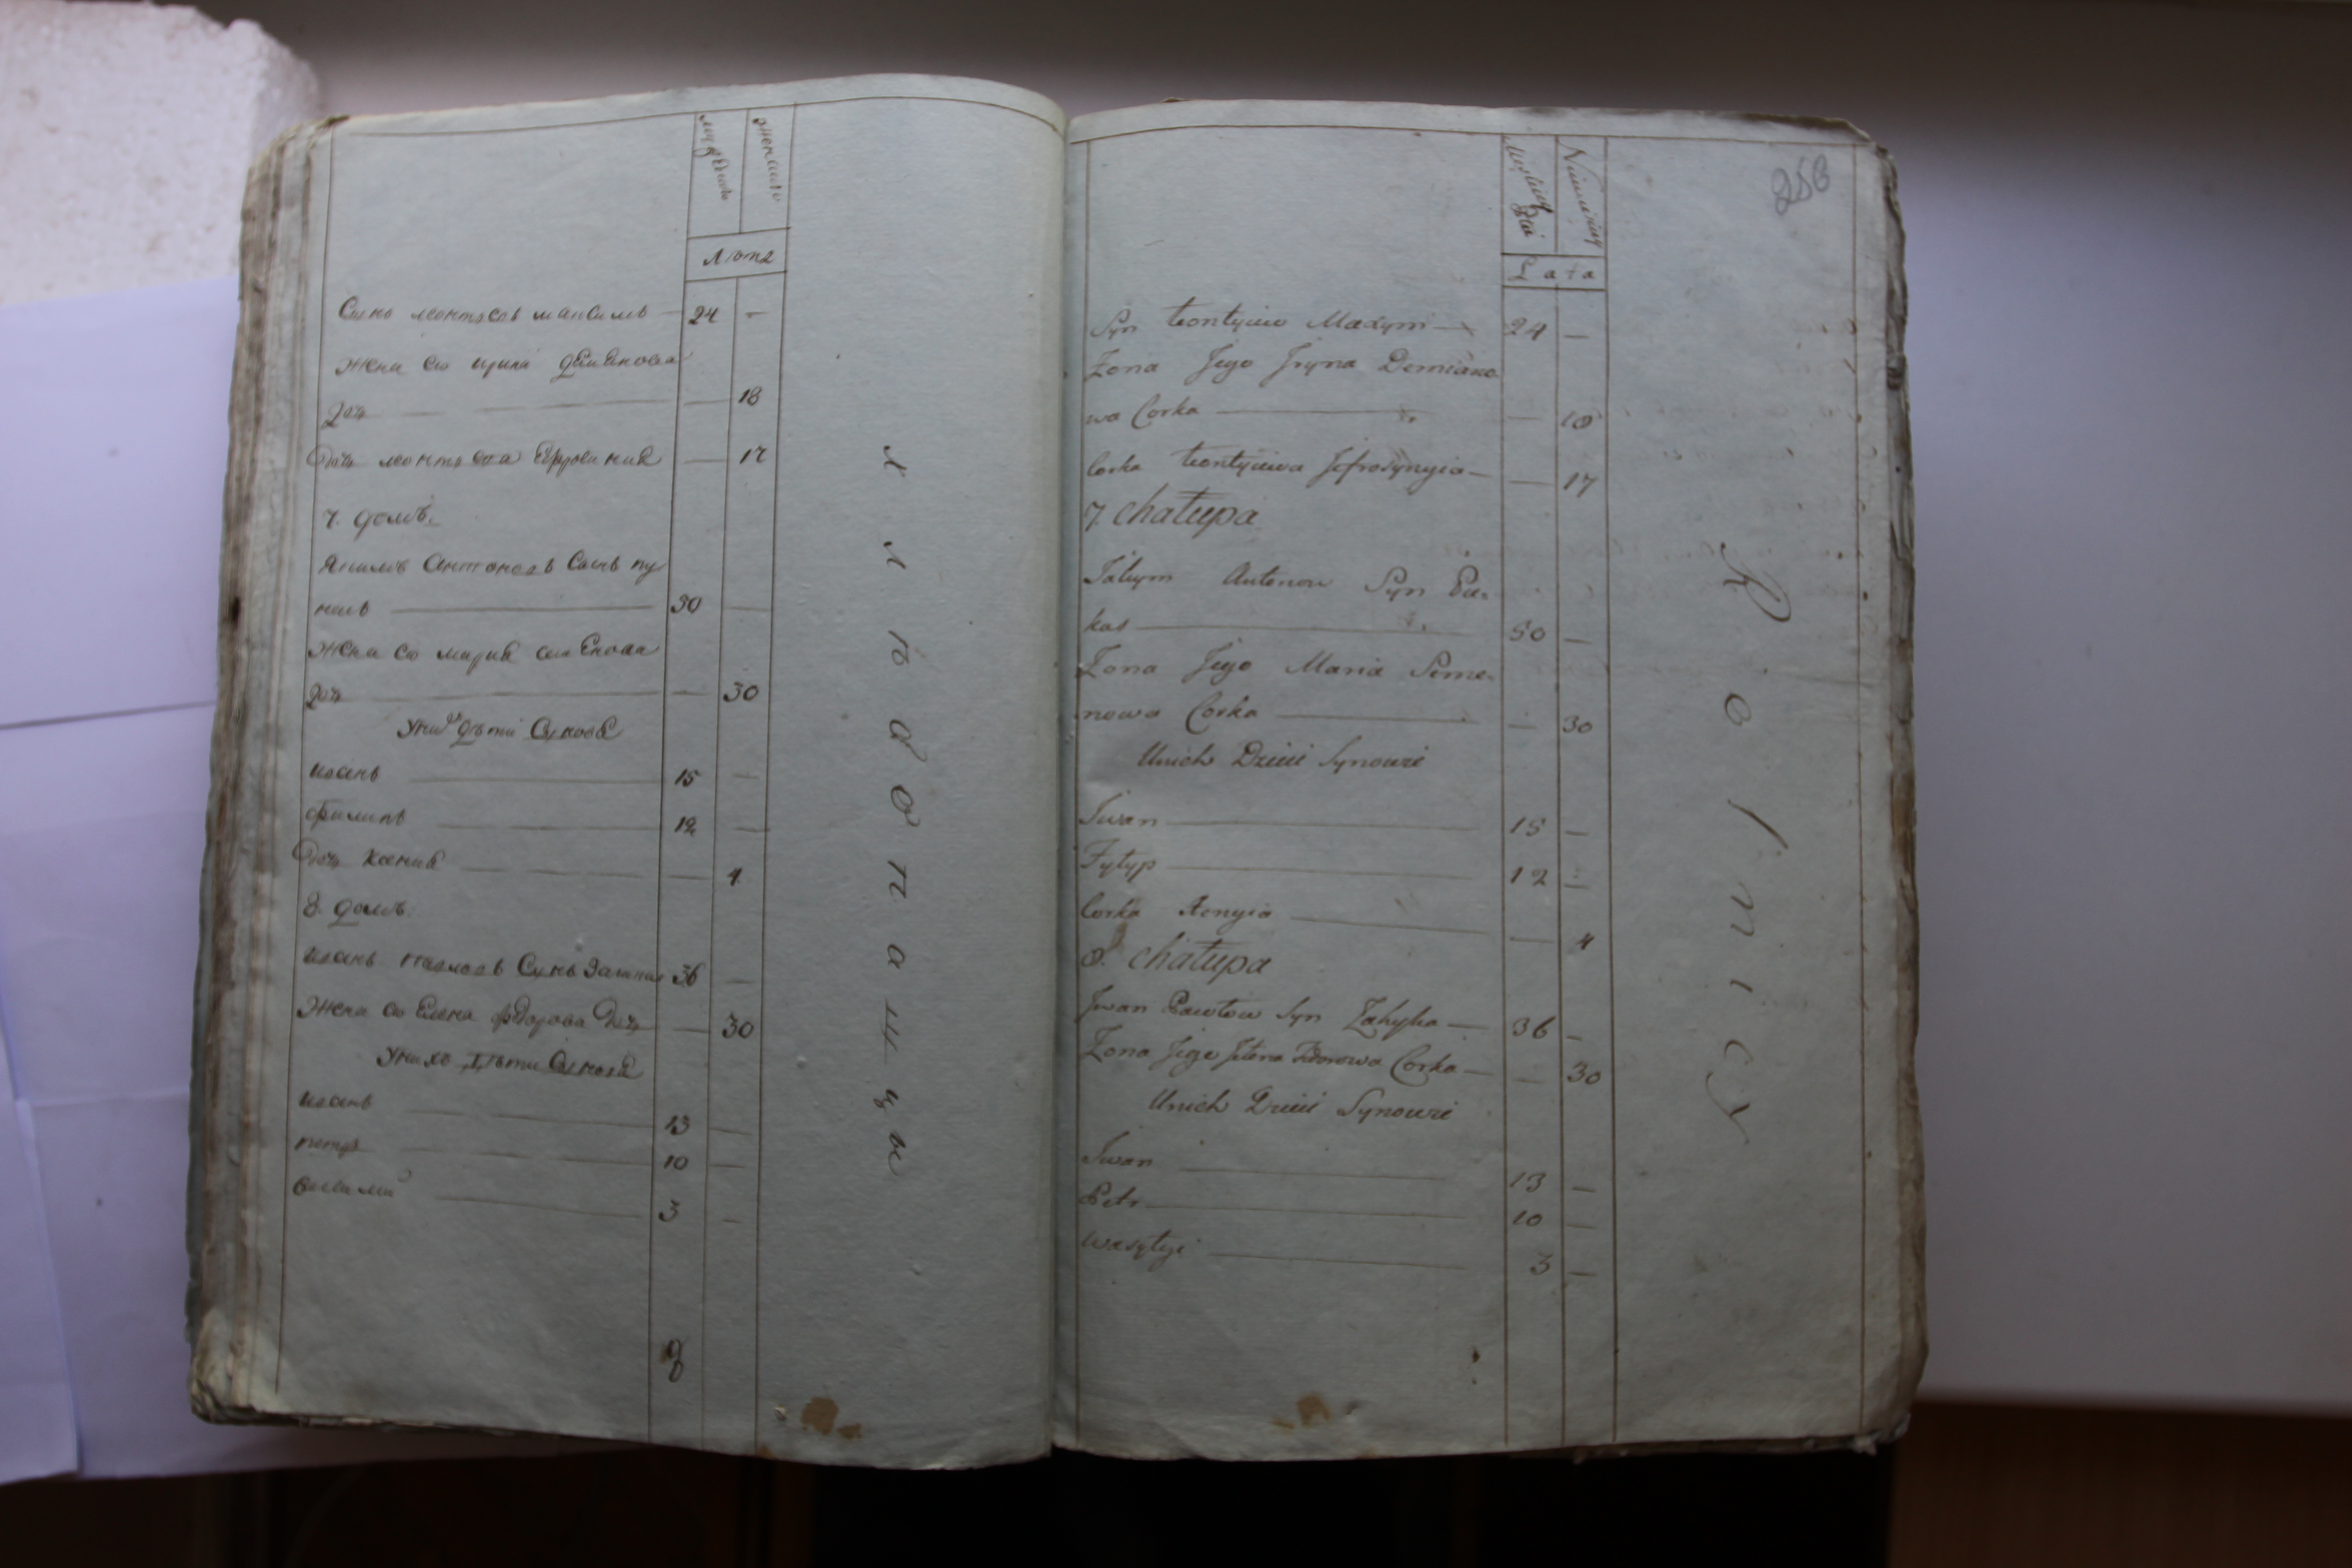 мужескъ
женскъ
лѣта
Сынъ леонтіевъ максимъ — 24 —
Жена ею ирина деменова
доч — — 18
Доч леонтіева Ефросиния — 17
7. домъ.
Якимъ Антоновъ Сынъ пу
касъ — 30 —
Жена ею мария семенова
доч — — 30
Уних дѣти Синовя
иванъ — 15 —
филипъ — 12 —
Доч ксения — — 4
8. домъ.
иванъ павловъ Сынъ 36 —
Жена ею Елена федорова Доч — 30
Унихъ Дѣти Синовя
иванъ — 13 —
петръ — 10 —
василий — 3 —
8
хлѣбопашцы
253
Lata
Syn Leontyiew Maxym — 24 —
Żona Jego Jryna Demiano
wa Corka — — 18
Corka Leontyiewa Jefrosynyia — — 17
7. Chałupa
Jakym Antonow Syn Pu-
kas — 30 —
Żona Jego Maria Seme-
nowa Corka — — 30
Unich Dzieci Synowie
Jwan — 15 —
Fyłyp — 12 —
Corka Xenyia — — 4
8. Chałupa
Jwan Pawłow Syn — 36 —
Żona Jego Jelena Fedorowa Corka — — 30
Unich Dzieci Synowie
Jwan — 13 —
Petr — 10 —
Wasyłyi — 3 —
Rolnicy